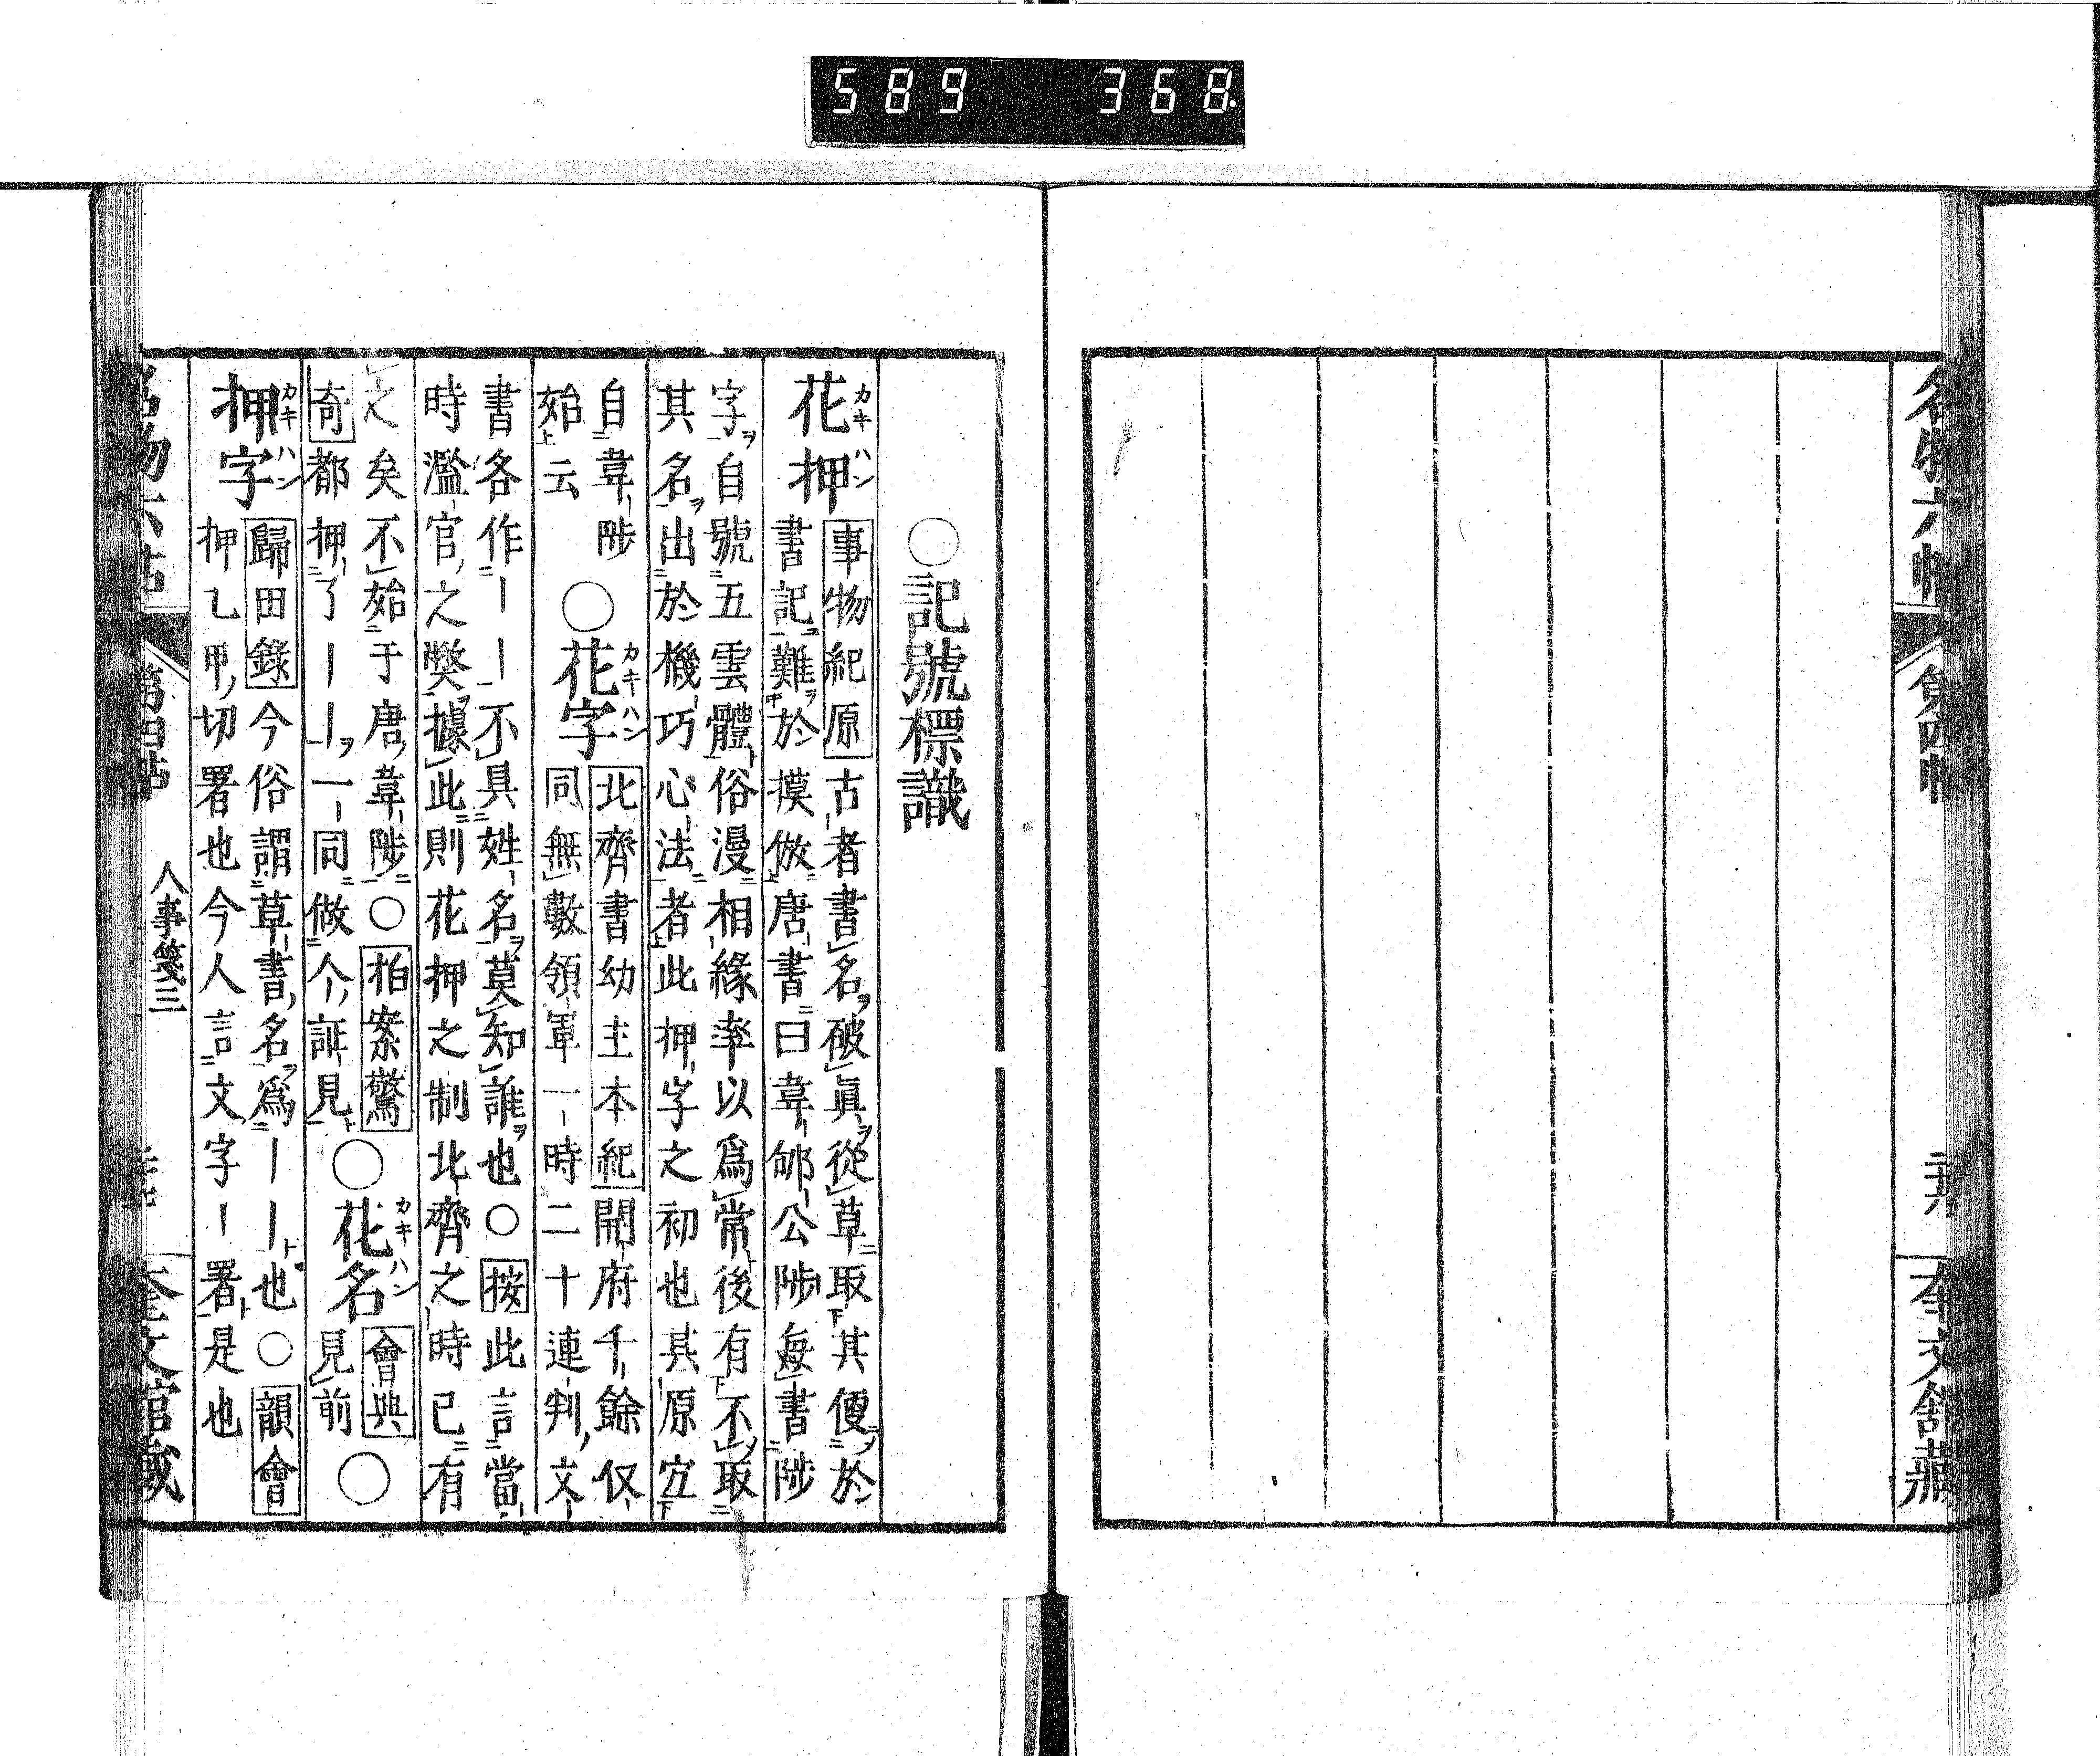 589 368
名物六帖 第四帖 奎文館藏
○記號標識
花押 カキハン 事物紀原 古者書名破眞從草取其便於
書記難於摸倣唐書曰韋郇公陟每書陟
字自號五雲體俗漫相緣率以爲常後有不取
其名出於機巧心法者此押字之初也其原宐
自韋陟
始云
○花字 カキハン 北齊書幼主本紀 開府千餘仪
同無數領軍一時二十連判文
書各作｜｜不具姓名莫知誰也○按此言當
時濫官之獘據此則花押之制北齊之時已有
之矣不始于唐韋陟○拍案驚
奇都押了｜｜一同做个証見
○花名 カキハン 會典
見前
○
押字 カキハン 歸田錄 今俗謂草書名爲｜｜也○韻會
押乙甲切署也今人言文字｜署是也
名物六帖 第四帖 人事箋三 奎文館藏